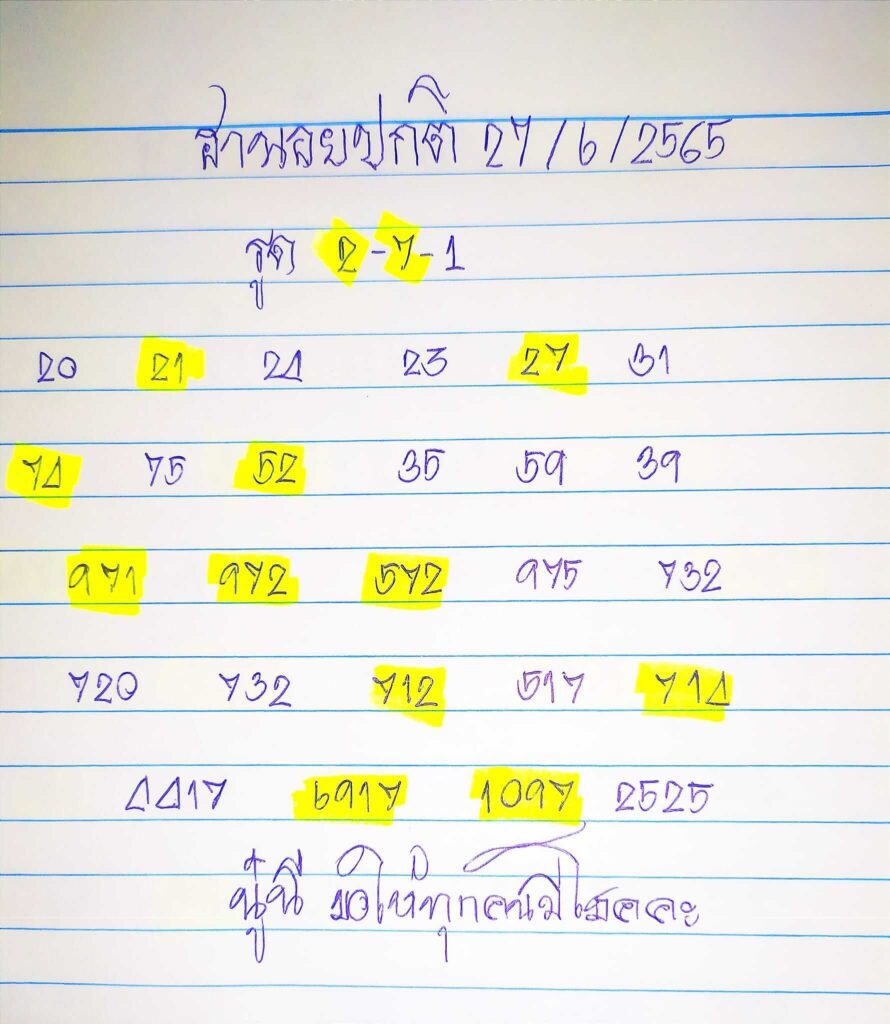 ฮานอยปกติ 27/6/2565
รูด 2-7-1
20 21 24 23 27 31
74 75 52 35 59 39
971 972 572 975 732
720 732 712 517 714
4417 6917 1097 2525
นี ขอให้ทุกคนมีโชคคะ